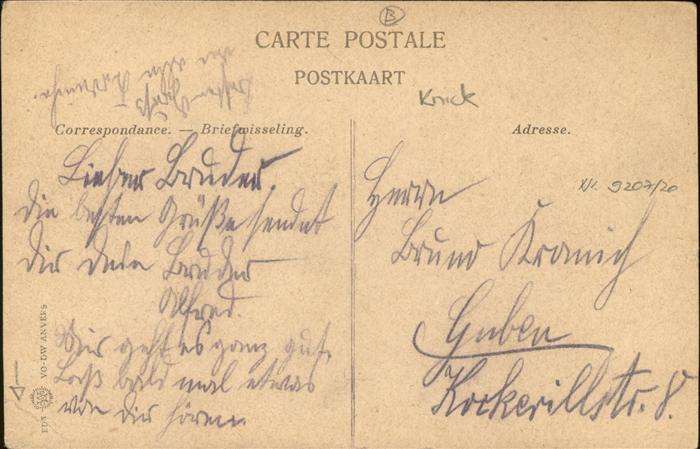 B
CARTE POSTALE
POSTKAART
Knick
Correspondance. — Briefwisseling.
Adresse.
Lieber Bruder,
die besten Grüße sendet
dir dein Bruder
Alfred.
Mir geht es ganz gut.
Laß bald mal etwas
von dir hören.
Herrn
Bruno Kranich
Guben
Kockerillstr. 8.
9207/20
EDT VO-DW ANVERS
besten Gruß
an alle